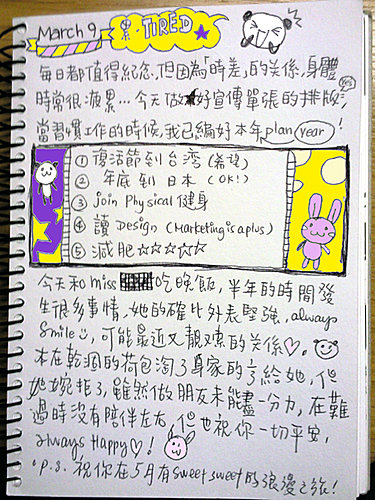 March 9
累·TIRED
每日都值得紀念.但因為「時差」的關係,身體
時常很疲累…今天做好宣傳單張的排版
(Yes)
當習慣工作的時候,我已編好本年plan(year)!
① 復活節到台湾(希望)
② 年底到日本(OK!)
③ join Physical健身
④ 讀 Design (Marketing is a plus)
⑤ 減肥☆☆☆☆☆
今天和miss 吃晚飯,半年的時間發
生很多事情,她的確比外表堅強,always
smile,可能最近又親嗽的關係♡.
本在乾涸的荷包淘了身家的 給她,但
她婉拒了,雖然做朋友未能盡一分力,在難
過時沒有陪伴左右,但也祝你一切平安,
always Happy♡!
p.s. 祝你在5月有sweet sweet的浪漫之旅!